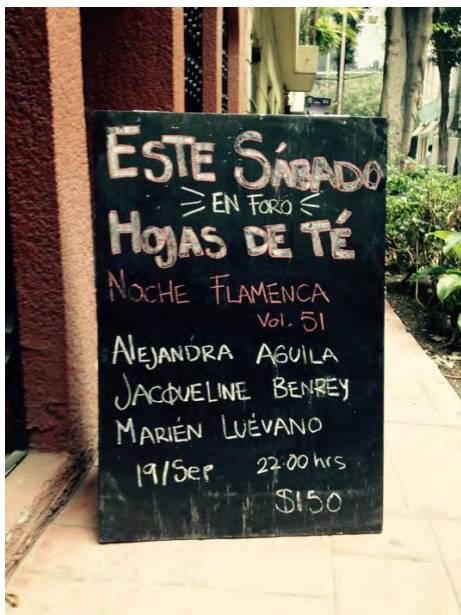 ESTE SÁBADO
EN FORO
HOJAS DE TÉ
NOCHE FLAMENCA
Vol. 51
ALEJANDRA AGUILA
JACQUELINE BENREY
MARIÉN LUÉVANO
19/Sep 22:00 hrs
$150